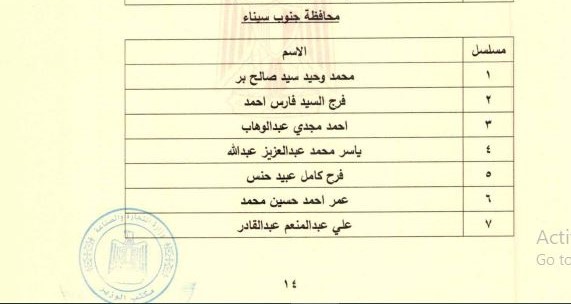 محافظة جنوب سيناء
مسلسل الاسم
١ محمد وحيد سيد صالح بر
٢ فرج السيد فارس احمد
٣ احمد مجدي عبدالوهاب
٤ ياسر محمد عبدالعزيز عبدالله
٥ فرح كامل عبيد حنس
٦ عمر احمد حسين محمد
٧ علي عبدالمنعم عبدالقادر
وزارة التجارة والصناعة
مكتب الوزير
١٤
Acti
Go to